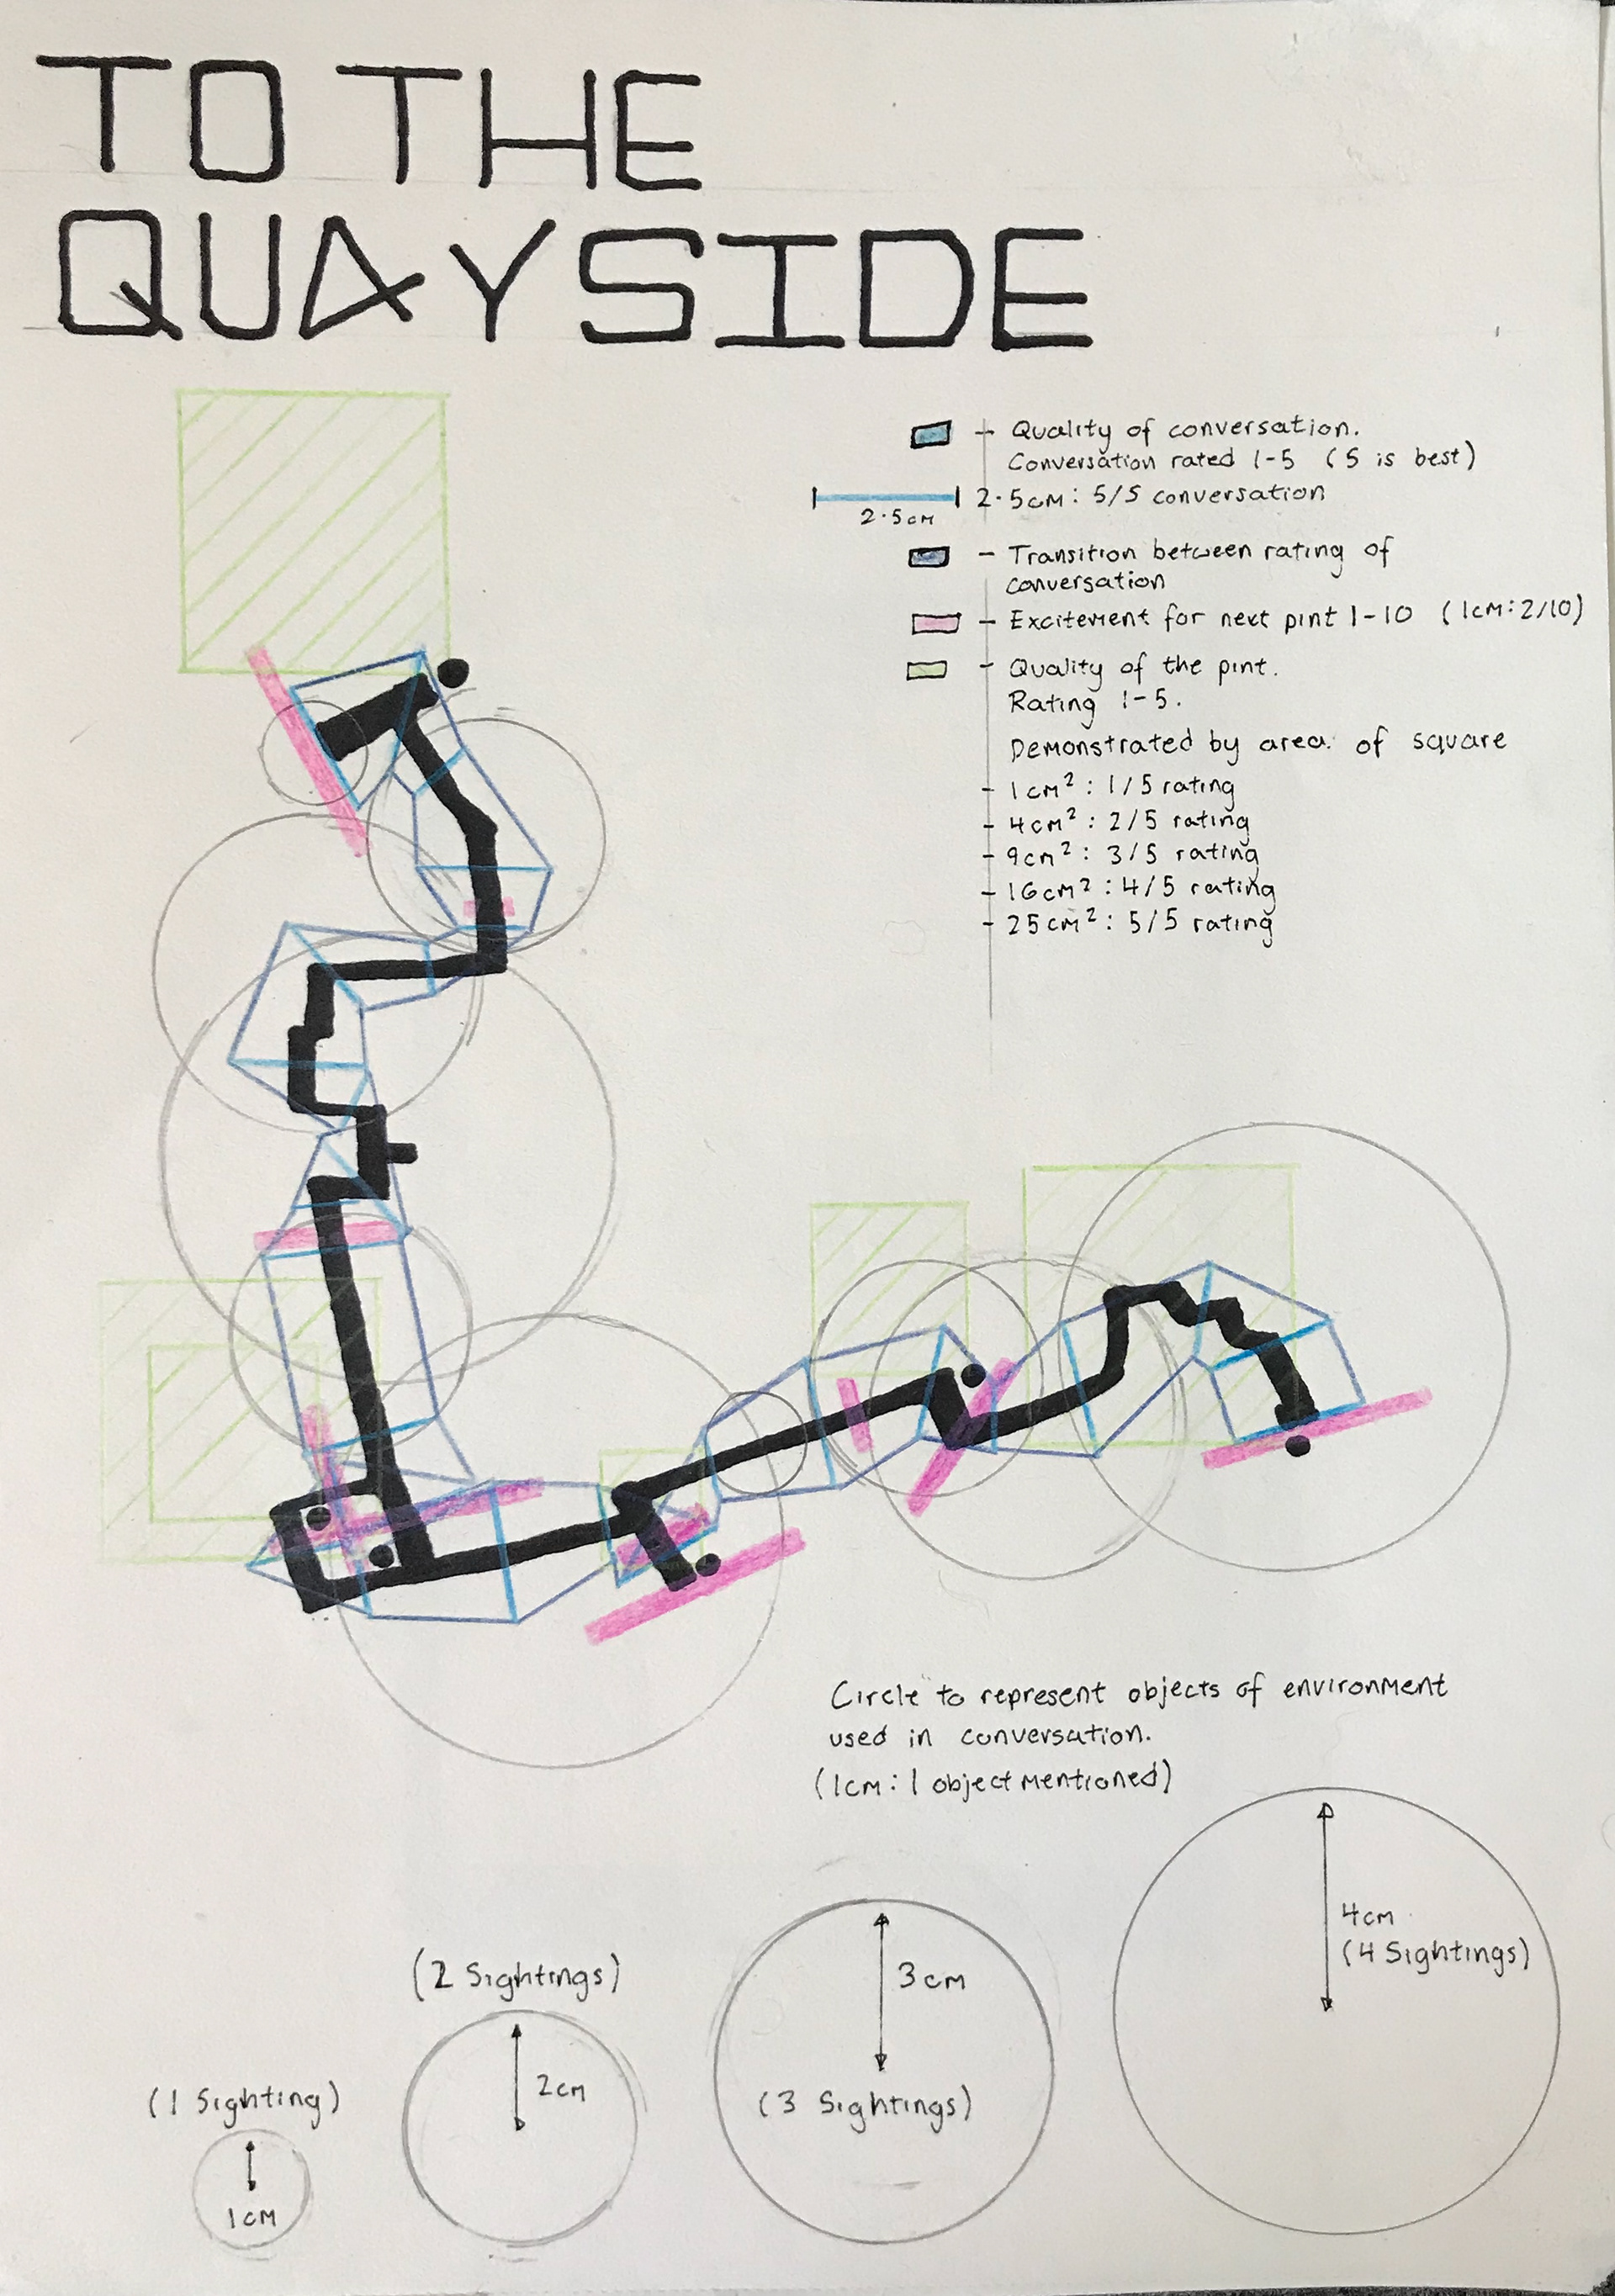 TO THE
QUAYSIDE
- Quality of conversation.
Conversation rated 1-5 (5 is best)
2.5cm : 5/5 conversation
2.5cm
- Transition between rating of
conversation
- Excitement for next pint 1-10 (1cm:2/10)
- Quality of the pint.
Rating 1-5.
Demonstrated by area of square
- 1cm² : 1/5 rating
- 4cm² : 2/5 rating
- 9cm² : 3/5 rating
- 16cm² : 4/5 rating
- 25cm² : 5/5 rating
Circle to represent objects of environment
used in conversation.
(1cm : 1 object mentioned)
4cm
(4 Sightings)
(2 Sightings)
3cm
2cm
(1 Sighting)
(3 Sightings)
1cm